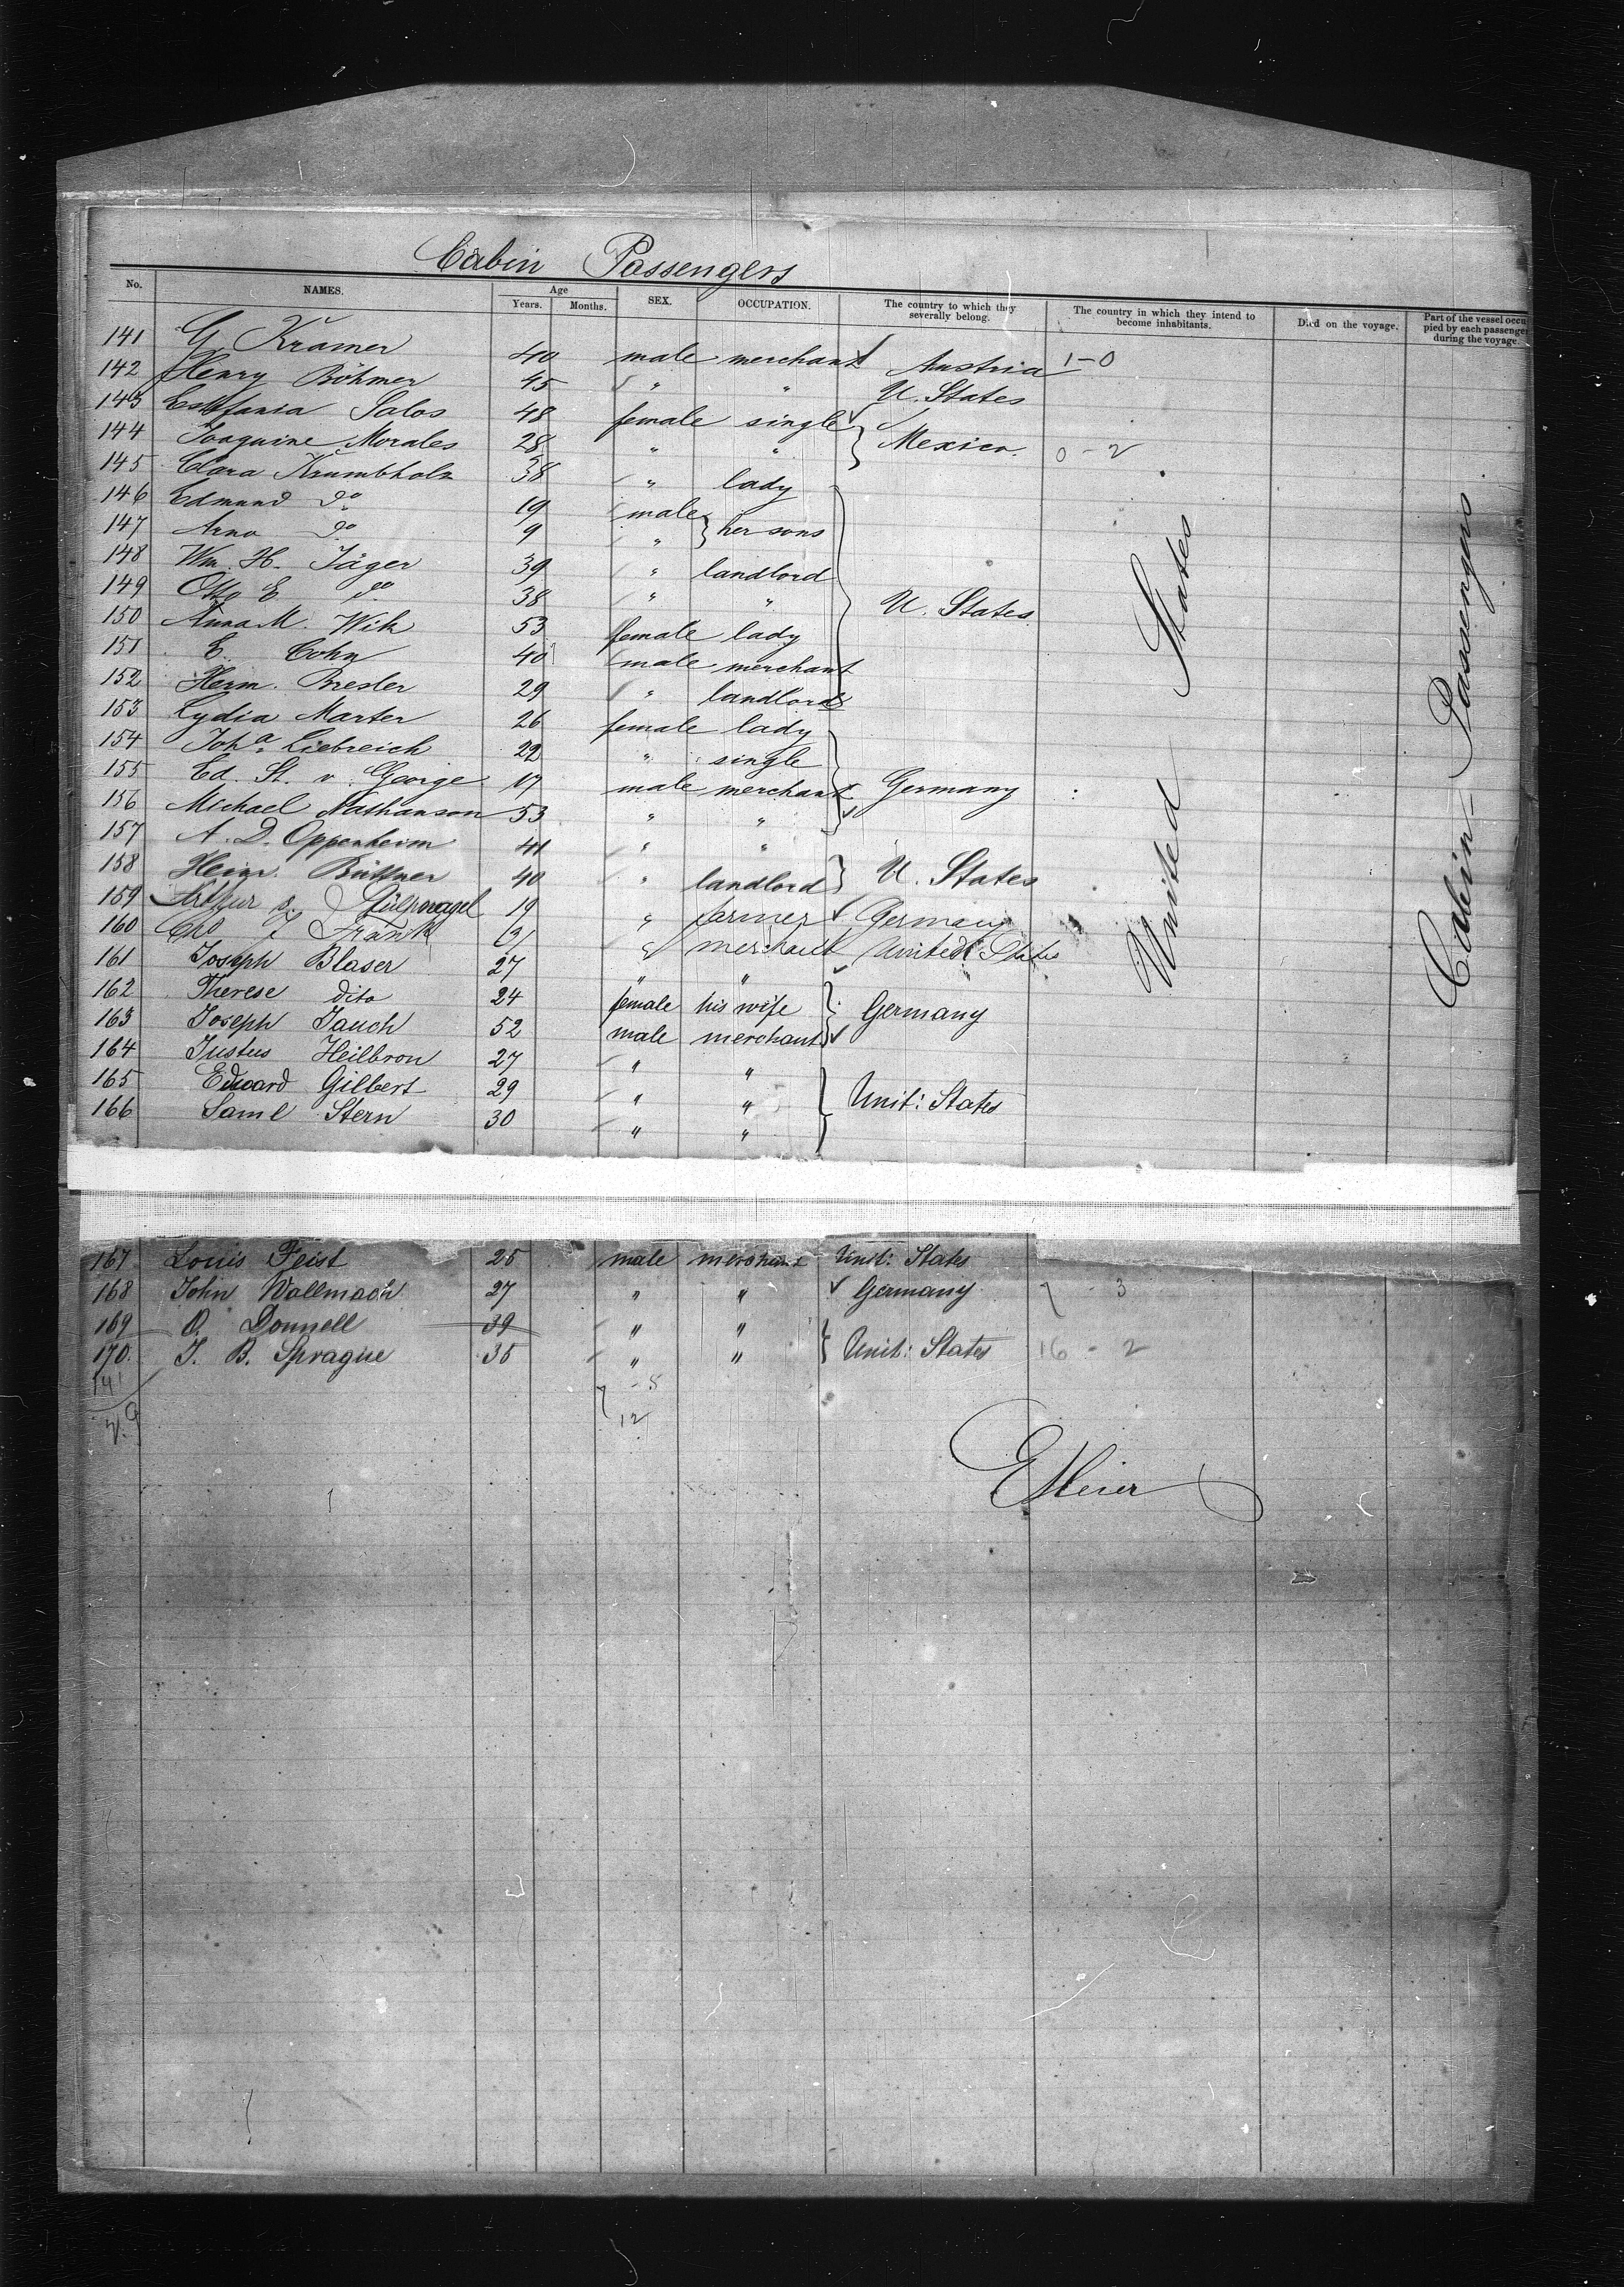 Cabin Passengers
No. NAMES. Age Years. Months. SEX. OCCUPATION. The country to which they severally belong. The country in which they intend to become inhabitants. Died on the voyage. Part of the vessel occupied by each passenger during the voyage.
141 G Krämer 40 male merchant Austria 1-0
142 Henry Böhmer 45 " " U. States
143 Estefania Salos 48 female single
144 Joaquine Morales 28 " " Mexico. 0-2
145 Clara Krumbholz 38 " lady
146 Edmund do 19 male
147 Arno do 9 " her sons
148 Wm. H. Jäger 39 " landlord
149 Otto E. do 38 " " U. States
150 Anna M. Wik 53 female lady
151 E. Cohn 40 male merchant
152 Herm. Bresler 29 " landlord
153 Lydia Marter 26 female lady
154 Joha. Liebreich 22 " single
155 Ed. St. v. George 17 male merchant Germany
156 Michael Nathanson 53 " "
157 A. D. Oppenheim 41 " "
158 Heinr. Büttner 40 " landlord U. States
159 Arthur 19 " farmer Germany
160 Chs J Frank " merchant United States
161 Joseph Blaser 27 " "
162 Therese dito 24 female his wife Germany
163 Joseph Jauch 52 male merchant
164 Justus Heilbron 27 " "
165 Edward Gilbert 29 " " Unit: States
166 Saml Stern 30 " "
United States
Cabin - Passengers
167 Louis Feist 25 male merchant Unit: States
168 John Wallmach 27 " " Germany 7 - 3
169 O. Donnell 39 " "
170. J. B. Sprague 35 " " Unit: States 16 - 2
141 7 - 5
12
EMeier